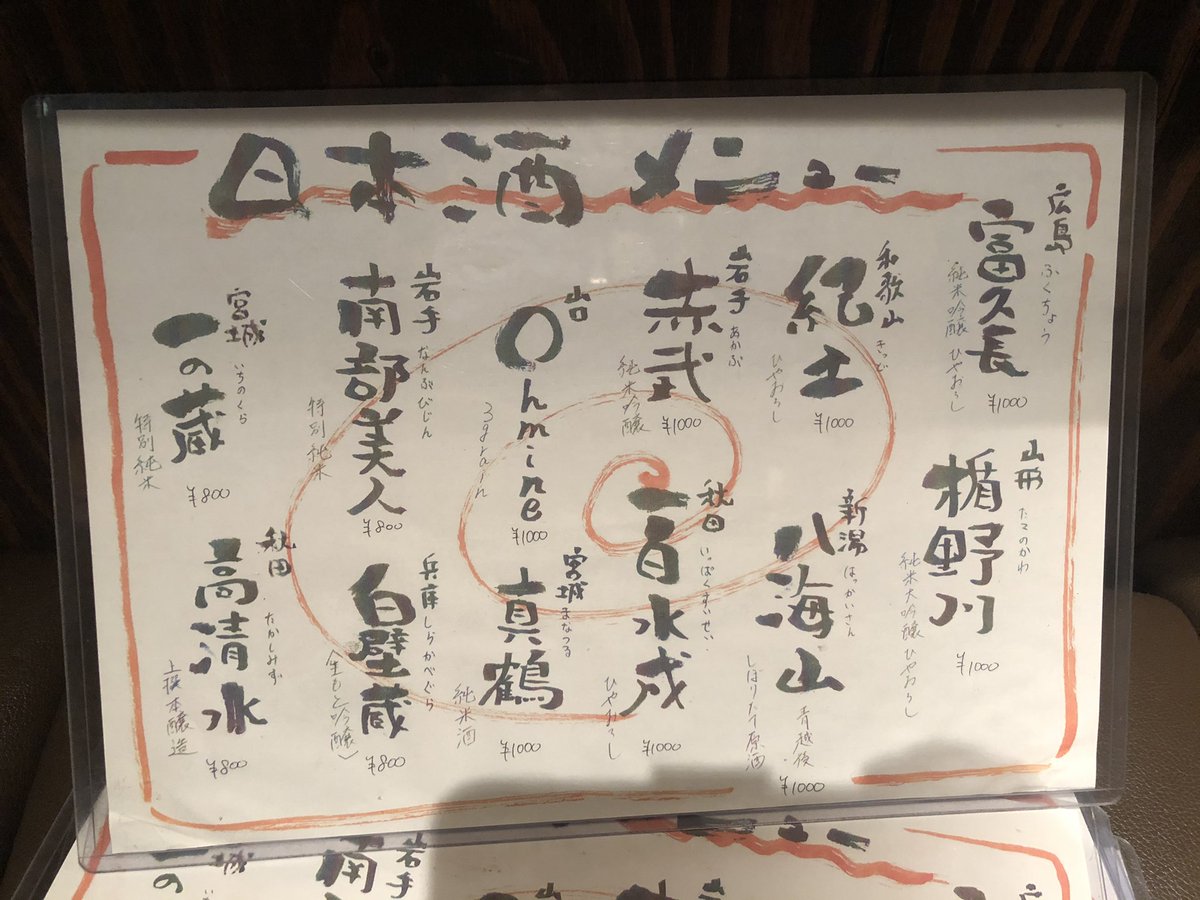 日本酒メニュー
広島
ふくちょう
富久長
純米吟醸 ひやおろし
¥1000
山形
たてのかわ
楯野川
純米大吟醸 ひやおろし
¥1000
和歌山
きっど
紀土
ひやおろし
¥1000
新潟
はっかいさん
八海山
青越後
しぼりたて原酒
¥1000
岩手
あかぶ
赤武
純米吟醸
¥1000
秋田
いっぱくすいせい
一白水成
ひやおろし
¥1000
山口
Ohmine
3grain
¥1000
宮城
まなつる
真鶴
純米酒
¥1000
岩手
なんぶびじん
南部美人
特別純米
¥800
兵庫
しらかべぐら
白壁蔵
(生もと吟醸)
¥800
宮城
いちのくら
一の蔵
特別純米
¥800
秋田
たかしみず
高清水
上撰本醸造
¥800
ニュー
広
山
岩手
南
宮城
一の